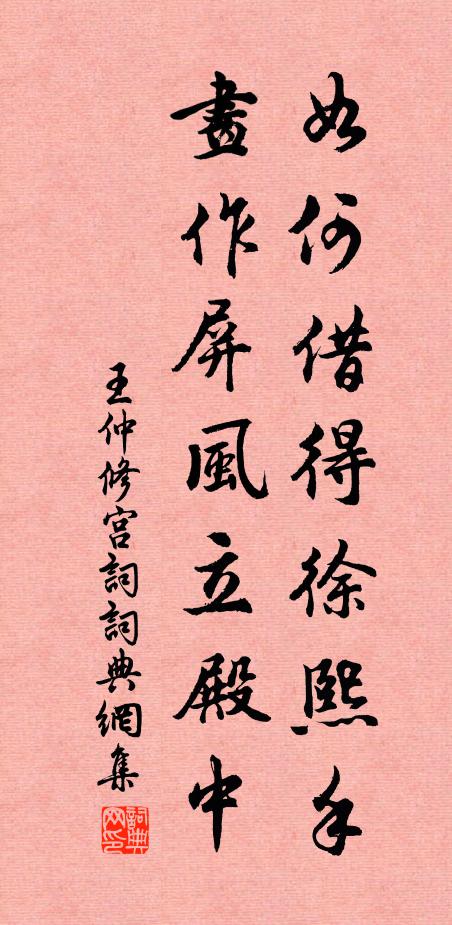 如何借得徐熙手
畫作屏風立殿中
王仲修宮詞詞典網集
詞典網印